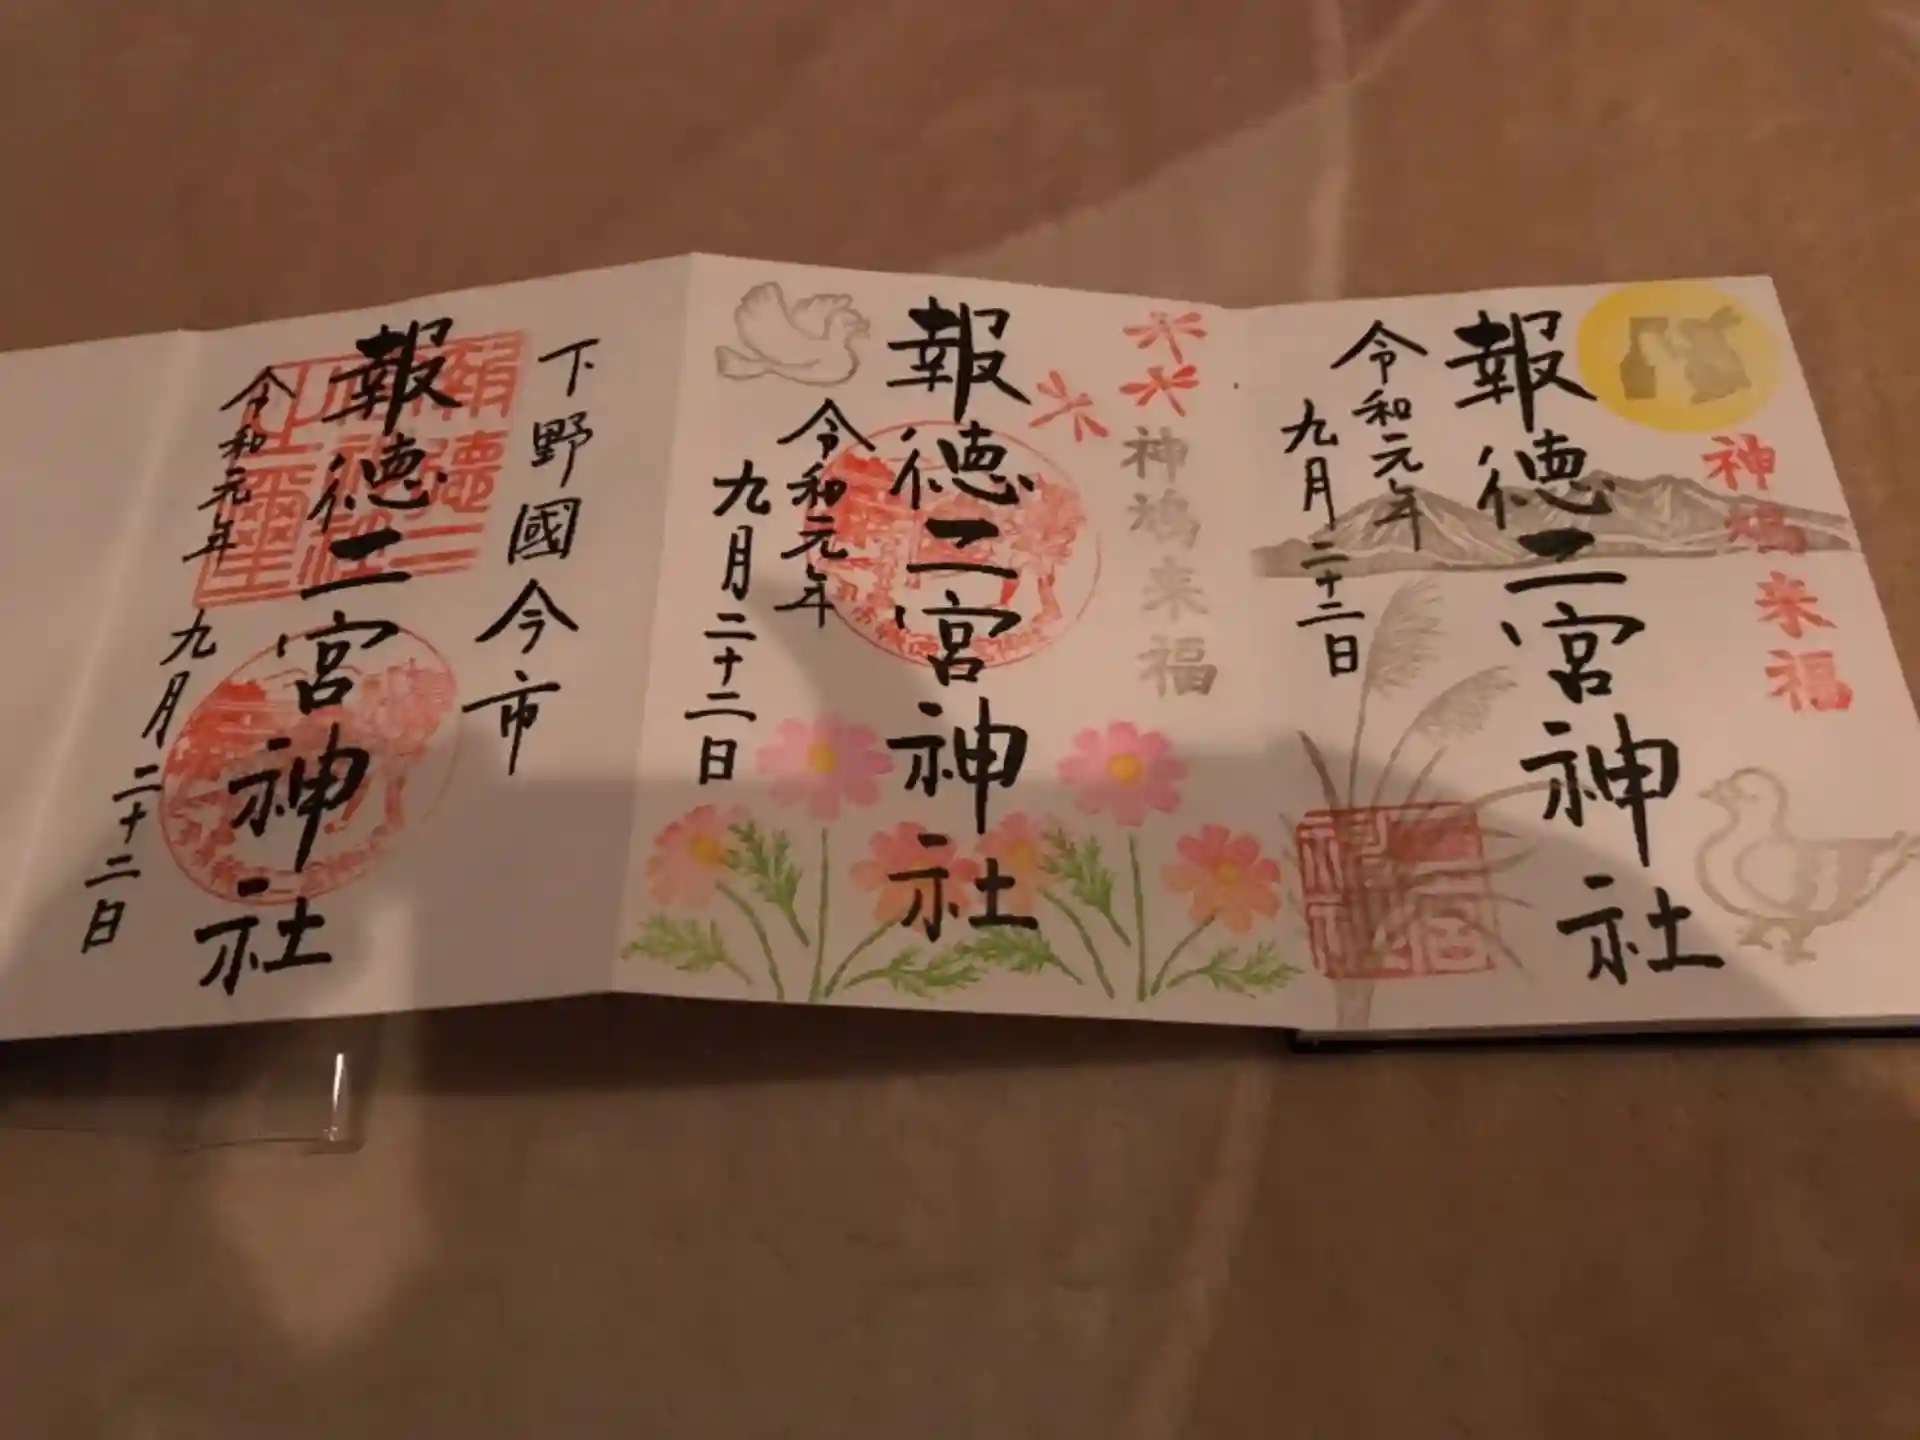 報徳二宮神社
令和元年
九月二十二日
神鳩来福
報徳二宮神社
令和元年
九月二十二日
神鳩来福
下野國今市
報徳二宮神社
令和元年
九月二十二日